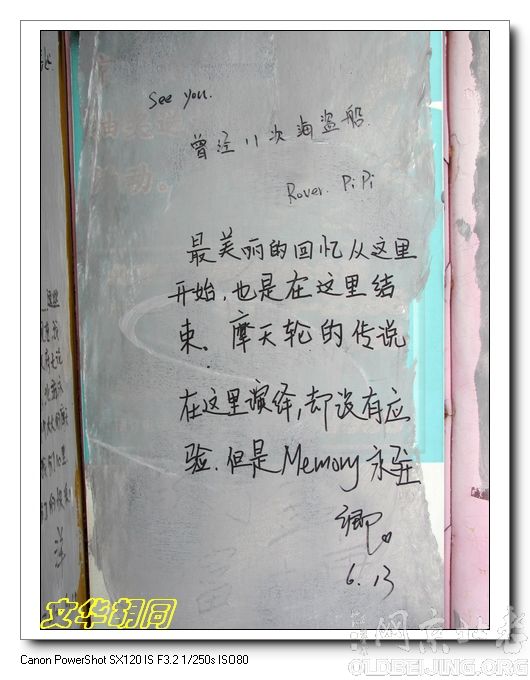 See you.
曾经11次海盗船
Rover. PiPi
最美丽的回忆从这里
开始,也是在这里结
束。摩天轮的传说
在这里演绎,却没有应
验.但是Memory永驻
卿
6.13
文华胡同
OLDBEIJING.ORG
Canon PowerShot SX120 IS F3.2 1/250s ISO80